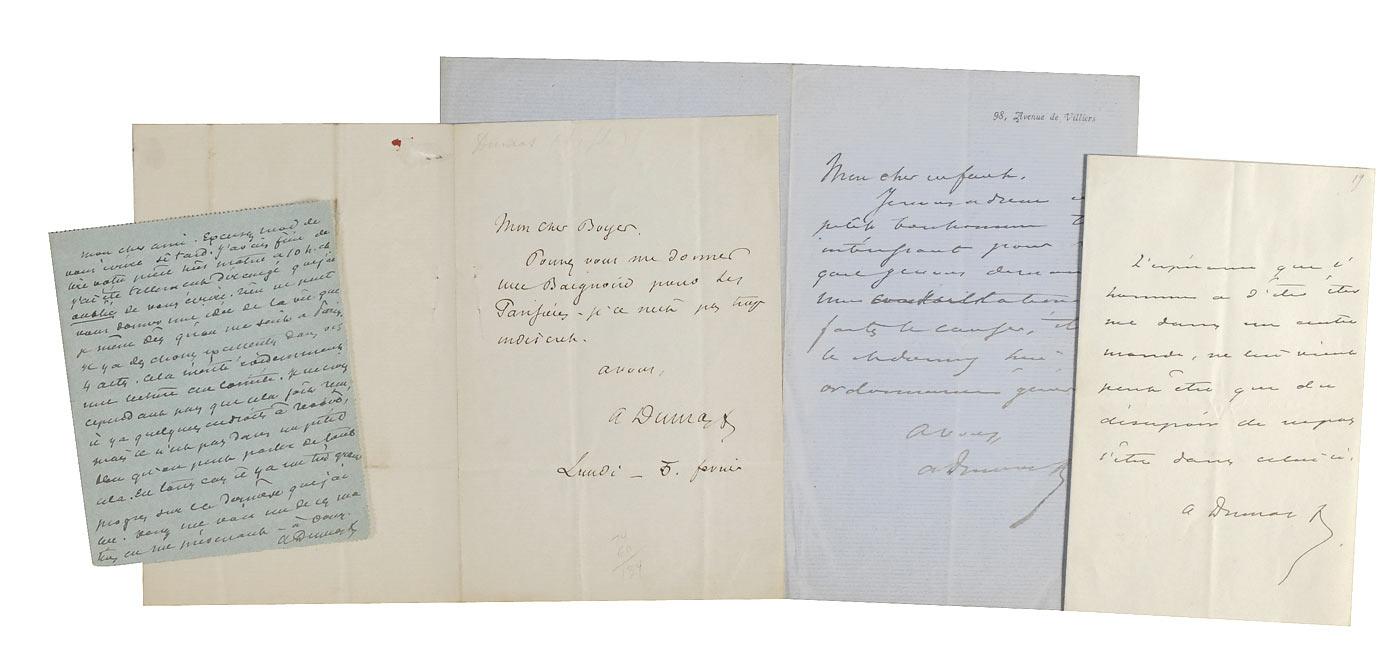 mon cher ami. Excusez moi de
vous écrire si tard. j'avais fini de
lire votre pièce hier matin à 10 h.
j'ai été tellement dérangé que j'ai
oublié de vous écrire. Rien ne peut
vous donner une idée de la vie que
je mène dès qu'on me sait à Paris.
il y a des choses excellentes dans vos
4 actes. cela mérite évidemment
une lecture au comité. je ne crois
cependant pas que cela soit reçu
il y a quelques endroits à
mais ce n'est pas dans un petit
bleu qu'on peut parler de tout
cela. En tous cas il y a un très grand
progrès sur la dernière que j'ai
lue. venez me voir un de ces ma
tins en me prévenant - à vous.
A Dumas f
Dumas
Mon cher Boyer.
Pouvez vous me donner
une Baignoire pour les
Parisiens - je ne suis pas trop
indiscret.
à vous,
A Dumas f
Lundi - 5. février
98, Avenue de Villiers
Mon cher enfant.
Je vous adresse
petit bonhomme
intéressant pour
que je vous
une
forts le causer,
le
ordonnances
à vous,
A Dumas f
19
L'espérance que l'
homme a d'être éter
nel dans un autre
monde, ne lui vient
peut être que du
désespoir de ne pas
l'être dans celui ci.
A Dumas f